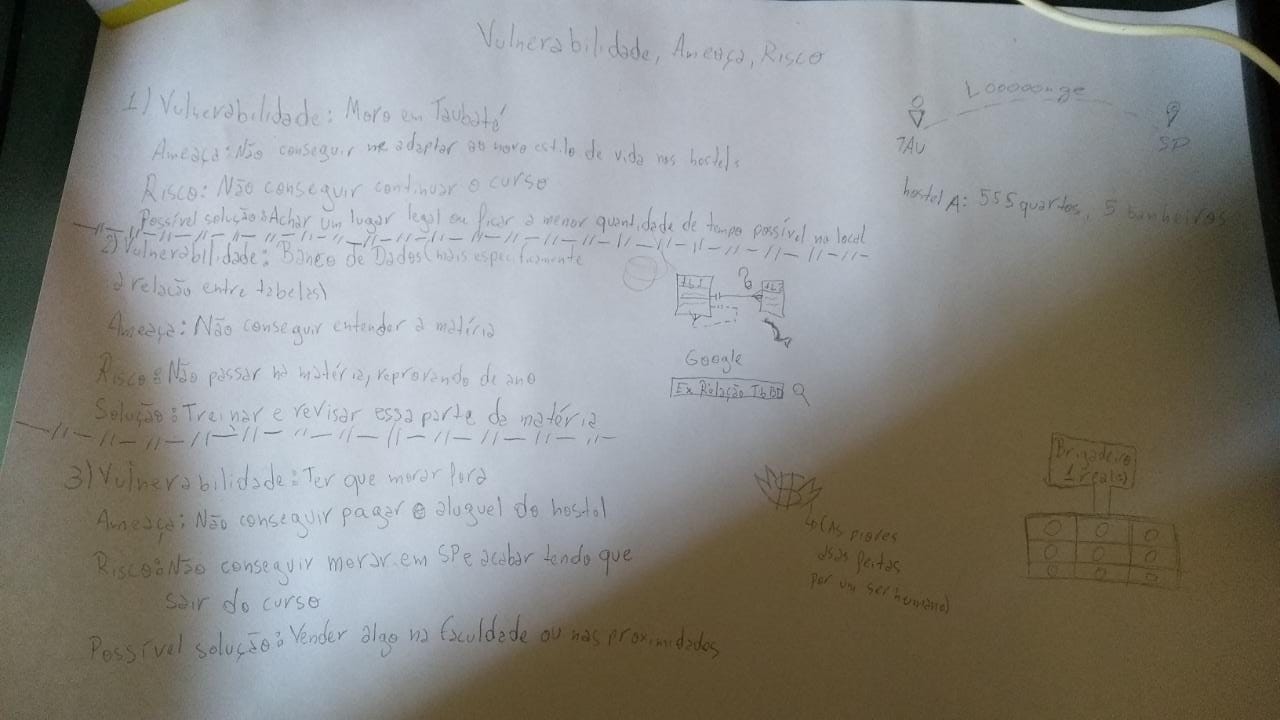 Vulnerabilidade, Ameaça, Risco
1) Vulnerabilidade: Moro em Taubaté
Ameaça: Não conseguir me adaptar ao novo estilo de vida nos hostels
Risco: Não conseguir continuar o curso
Possível solução: Achar um lugar legal ou ficar a menor quantidade de tempo possível no local
Looooonge
TAU
SP
hostel A: 555 quartos, 5 banheiros
2) Vulnerabilidade: Banco de Dados (mais especificamente
a relação entre tabelas)
Ameaça: Não conseguir entender a matéria
Risco: Não passar na matéria, reprovando de ano
Solução: Treinar e revisar essa parte da matéria
tb1
tb2
Google
Ex Relação TbBD
3) Vulnerabilidade: Ter que morar fora
Ameaça: Não conseguir pagar o aluguel do hostel
Risco: Não conseguir morar em SP e acabar tendo que
sair do curso
Possível solução: Vender algo na faculdade ou nas proximidades
(As piores
asas feitas
por um ser humano)
Brigadeiro
1 real(is)